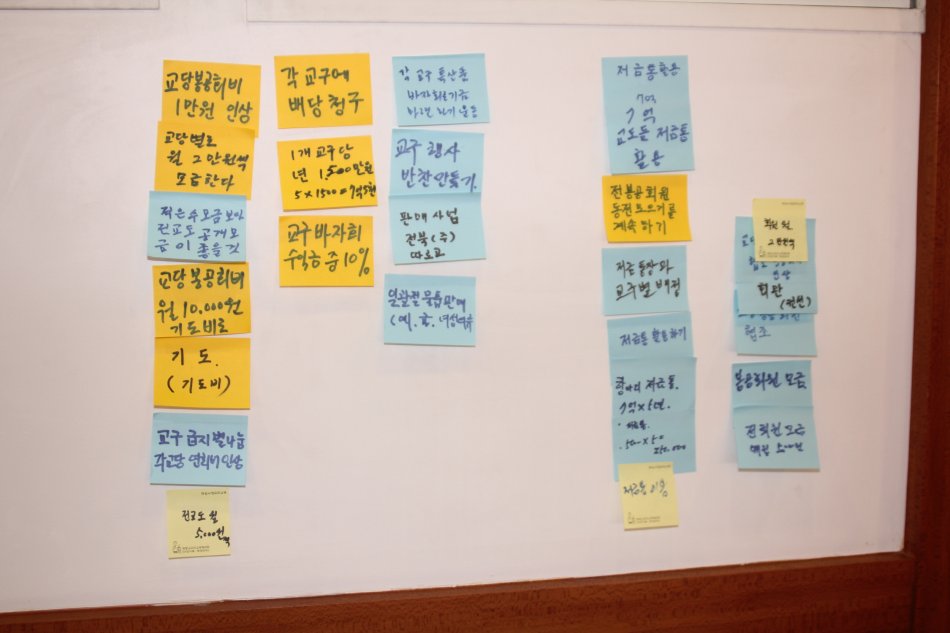 교당봉공회비
1만원 인상
교당별로
월 2만원씩
모금한다
적은수모금보아
전교도 공개모
금이 좋을것
교당봉공회비
월 10,000원
기도비로
기도.
(기도비)
교구 급지별나눔
각교당 연회비인상
전교도 월
5,000원씩
각 교구에
배당청구
1개교구당
년 1,500만원
5×1500=7억5천
교구바자회
수익금 중 10%
각 교구 특산품
바자회로기금
마련하기운동
교구행사
반찬만들기.
판매사업
전북(주)
따로교
일괄적물품판매
(예.
저금통활용
7억
교도들 저금통
활용
전봉공회원
동전모으기를
계속하기
저금통장과
교구별배정
저금통활용하기
항아리 저금통.
7억×5년.
저금통.
500×50
250.000
저금통 이용
회원 월
2만원씩
인상
회관
협조
봉공회원모금
전회원모금